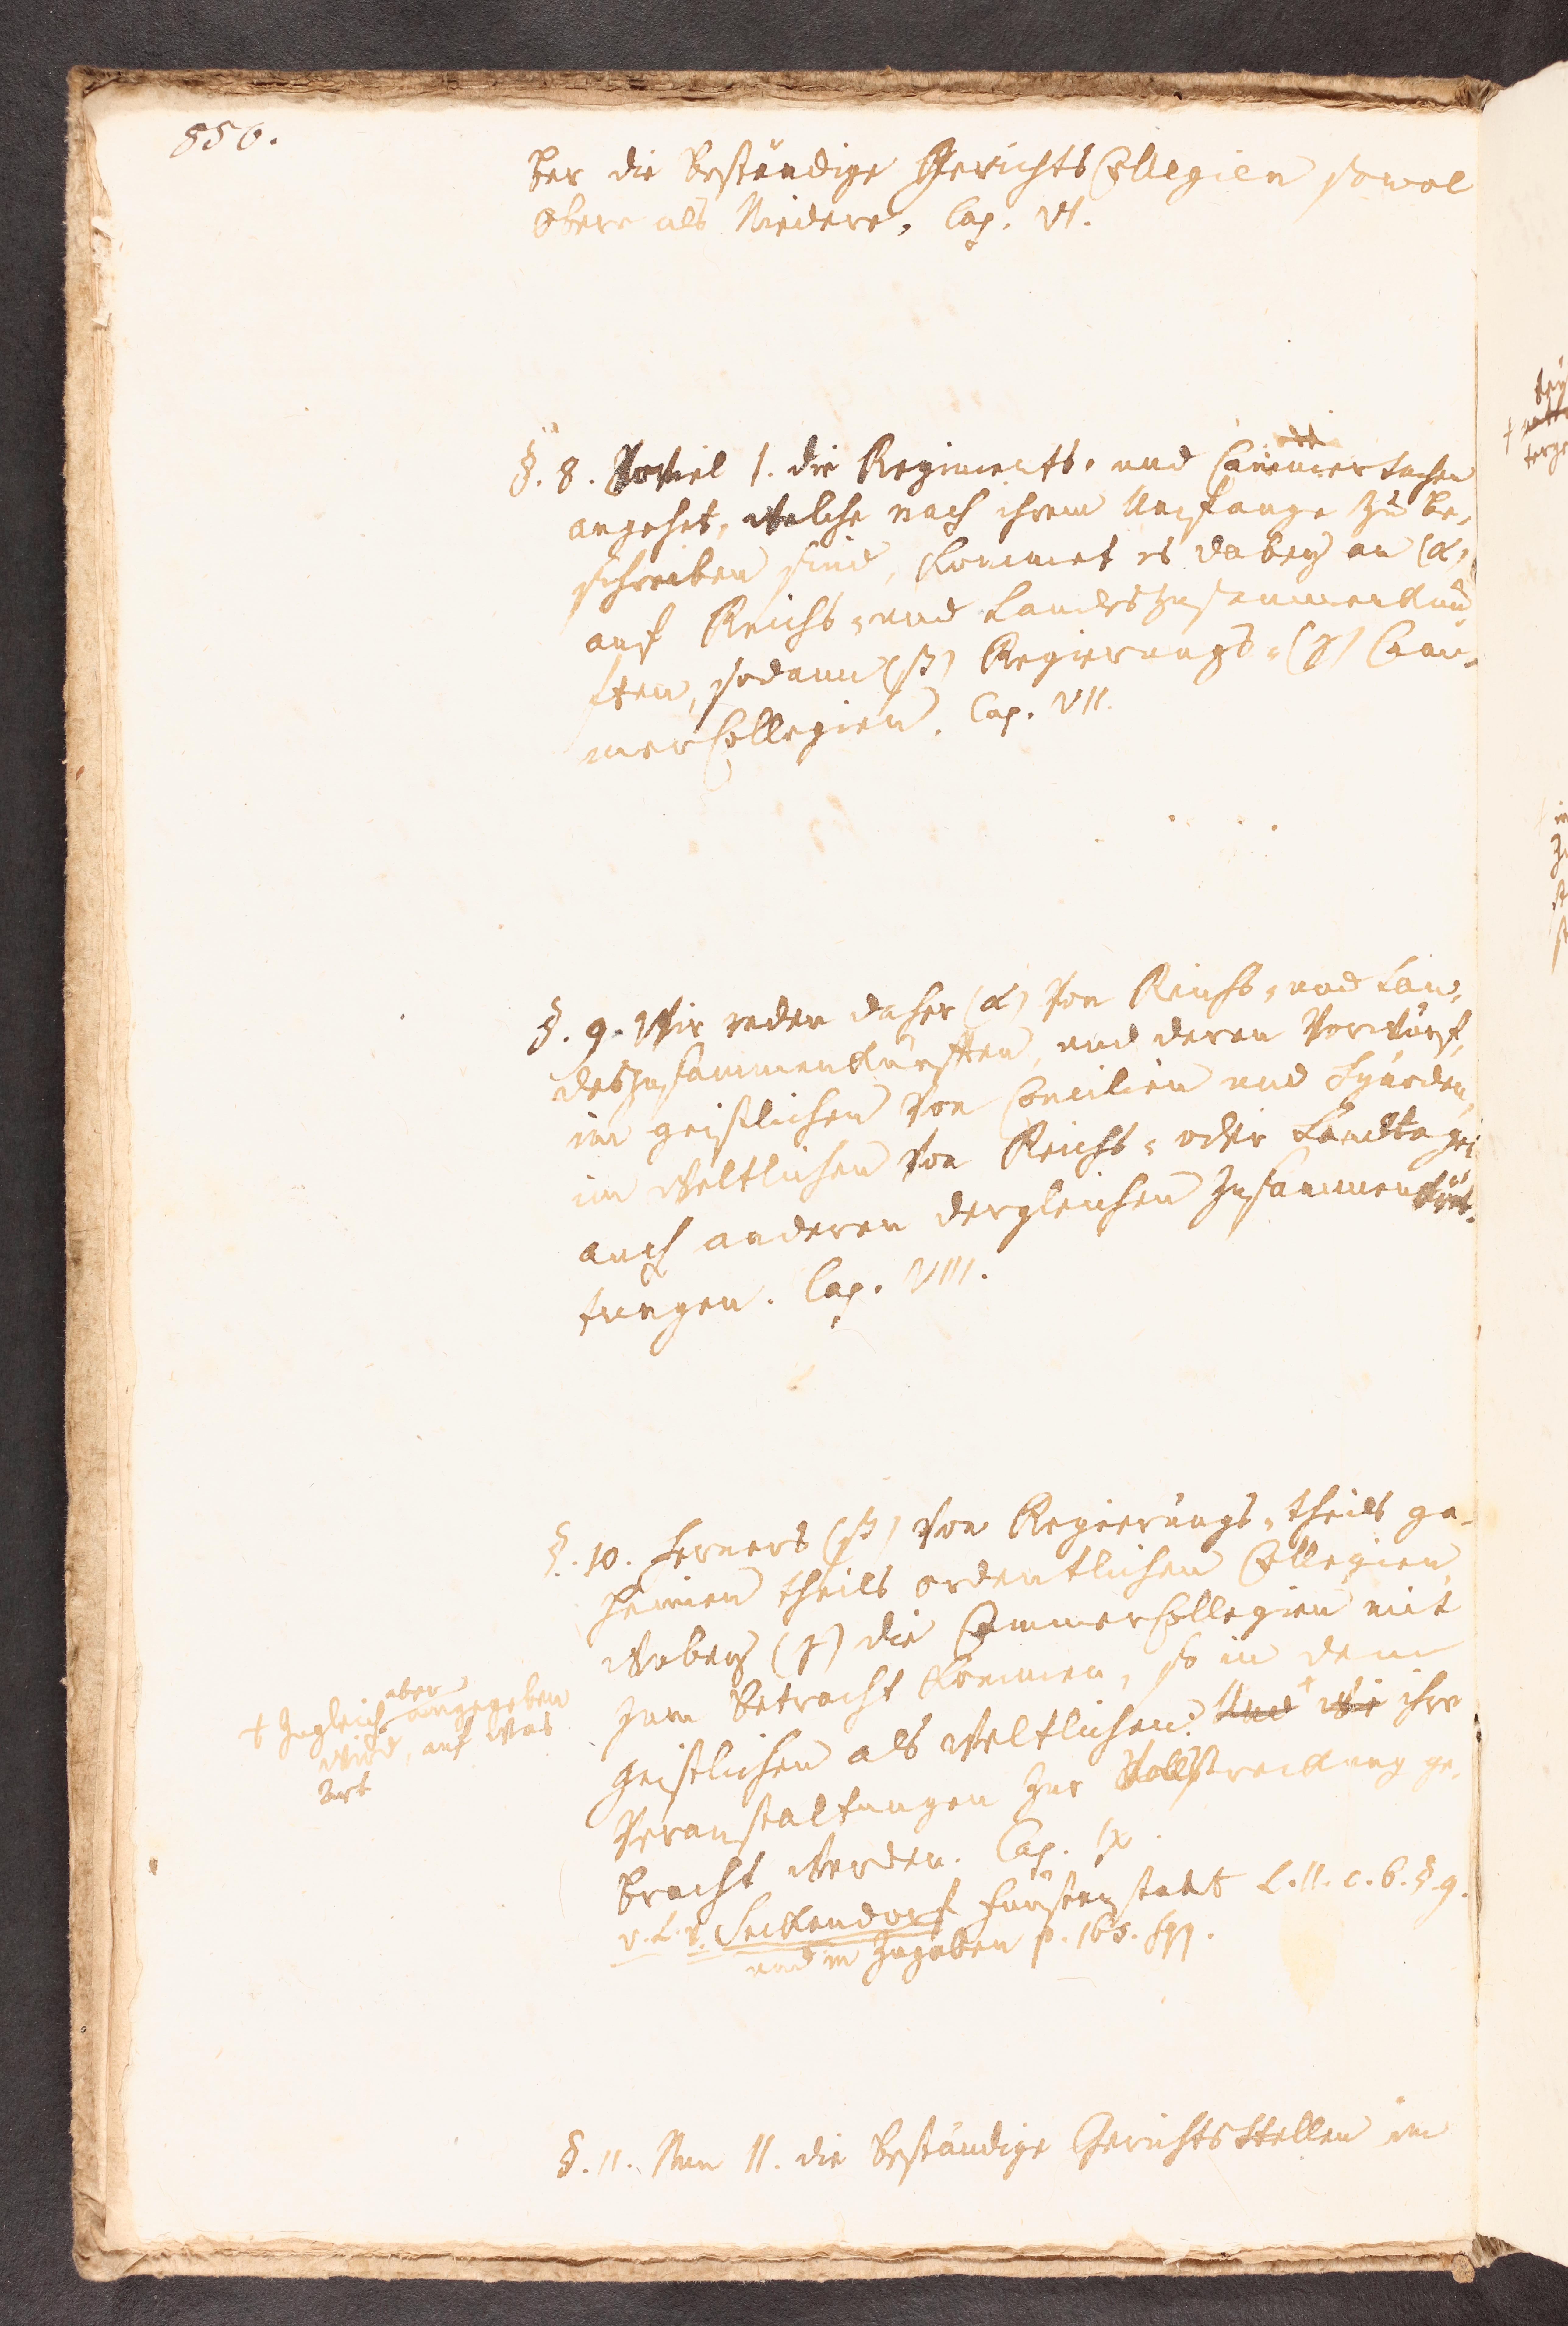 856.
ber die beständige Gerichts Collegien sowol
Obere als Niedere, Cap. VI.
§. 8. Soviel 1. die Regiments- und Cammersachen
angehet, welche nach ihrem Umfange zu be-
schreiben sind, kommet es dabey an (α)
auf Reichs- und Landeszusammenkün-
ften, sodann (β) Regierungs- (γ) Cam-
merCollegien. Cap. VII.
§. 9. Wir reden daher (α) von Reichs- und Lan-
deszusammenkünften, und deren Vorwurf,
im geistlichen von Concilien und Synoden,
im weltlichen von Reichs- oder Landtagen
auch anderen dergleichen Zusammen
tungen. Cap. VIII.
§. 10. Ferners (β) von Regierungs- theils ge-
heimen theils ordentlichen Collegien,
wobey (γ) die CammerCollegien mit
zum Betracht kommen, so im dem
geistlichen als weltlichen. Und + wie ihre
Veranstaltungen zur Vollstreckung ge-
bracht werden. Cap. IX.
v. L. v. Seckendorf Fürstenstaat L. II. c. 6. § 9.
und in Zugaben p. 165. sqq.
+ Zugleich aber angegeben
wird, auf was
Art
§. 11. Nun II. die beständige Gerichtsstellen im